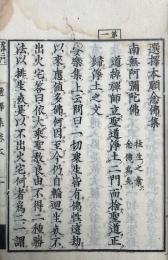 選擇本願念佛集
南無阿彌陀佛
往生之業
念佛爲先
道綽禪師立聖道淨土二門而捨聖道正
歸淨土之文
安樂集上云問曰一切衆生皆有佛性遠劫
以來應值多佛何因至今仍自輪迴生死不
出火宅答曰依大乘聖教良由不得二種勝
法以排生死是以不出火宅何者爲二一謂
第一